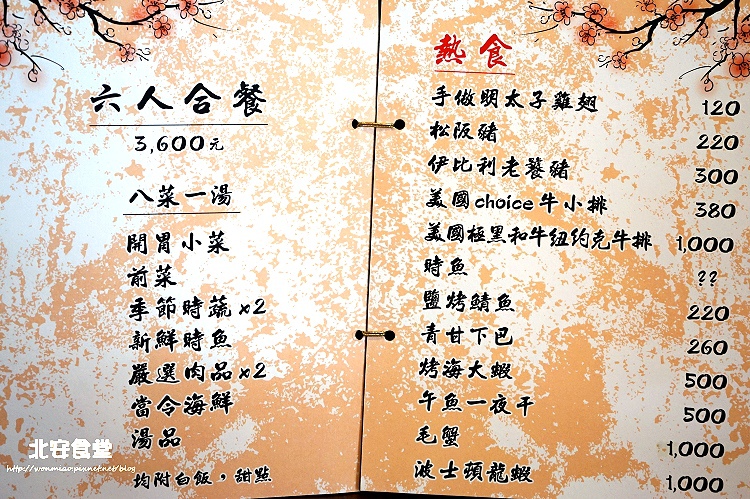 六人合餐
3,600元
八菜一湯
開胃小菜
前菜
季節時蔬x2
新鮮時魚
嚴選肉品x2
當令海鮮
湯品
均附白飯,甜點
熱食
手做明太子雞翅 120
松阪豬 220
伊比利老饕豬 300
美國choice牛小排 380
美國極黑和牛紐約克牛排 1,000
時魚 ??
鹽烤鯖魚 220
青甘下巴 260
烤海大蝦 500
午魚一夜干 500
毛蟹 1,000
波士頓龍蝦 1,000
北安食堂
http://vronmiao.pixnet.net/blog